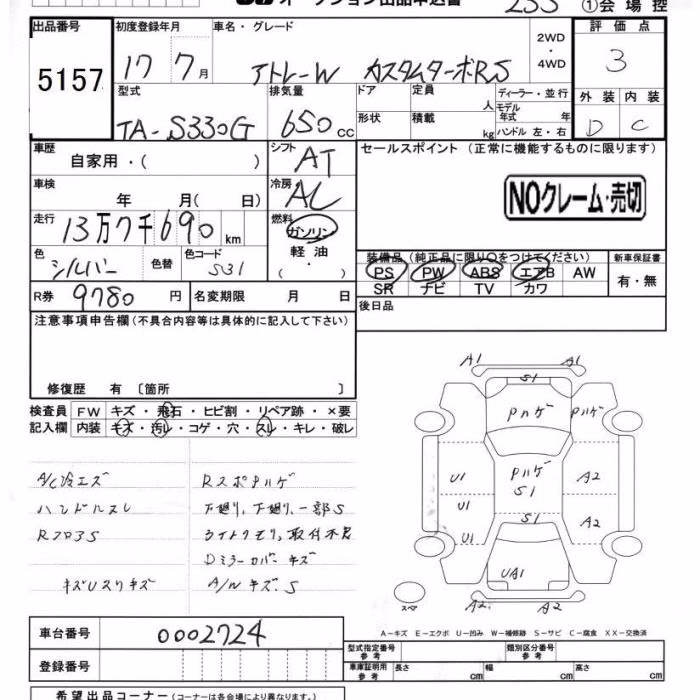 オークション出品申込書 255 ①会場控
出品番号 初度登録年月 車名・グレード 評価点
5157 17 7月 アトレーW カスタムターボRS 2WD ・ 4WD 3
型式 排気量 ドア 定員 人 ディーラー・並行 外装 内装
TA-S330G 650 cc 形状 積載 kg モデル年式 年 ハンドル 左・右 D C
車歴 自家用・( ) シフト AT セールスポイント (正常に機能するものに限ります)
車検 年 月( 日) 冷房 AC NOクレーム・売切
走行 13万7千690 km 燃料 ガソリン
軽油
( ・ )
色 シルバー 色替 色コード S31 装備品 (純正品に限り○をつけてください) 新車保証書
PS PW ABS エアB AW 有・無
SR ナビ TV カワ
R券 9780 円 名変期限 月 日 後日品
注意事項申告欄 (不具合内容等は具体的に記入して下さい)
修復歴 有 〔箇所 〕
検査員 FW キズ・飛石・ヒビ割・リペア跡・×要
記入欄 内装 キズ・汚レ・コゲ・穴・スレ・キレ・破レ
A/C冷エズ RスポPハゲ
ハンドルスレ 下廻り、下廻り、一部S
RフロアS ライトクモリ、取付不良
Dミラーカバーキズ
キズUスリキズ A/Wキズ、S
A1 A1
S1
Pハゲ Pハゲ
U1 Pハゲ S1 A2
U1 S1 A2
U1
UA1
スペア A2 A2
A-キズ E-エクボ U-凹み W-補修跡 S-サビ C-腐食 XX-交換済
車台番号 0002724
登録番号
型式指定番号 参考 類別区分番号 参考
車庫証明用 参考 長さ cm 幅 cm 高さ cm
希望出品コーナー (コーナーは各会場により異なります。)